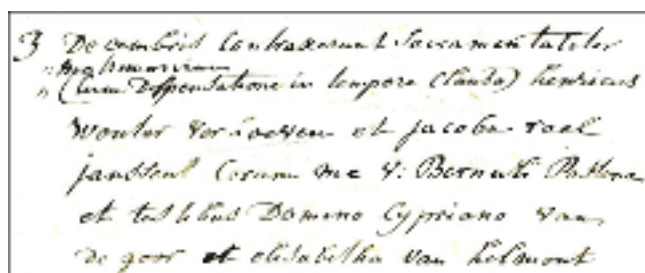 3 Decembris Contraxerunt Sacramentaliter
matrimonium
(cum Dispensatione in tempore Clauso) henricus
Wouter verhoeven et jacoba
janssens Coram me Bernuli
et testibus Domino Cypriano van
de goor et elisabetha van helmont